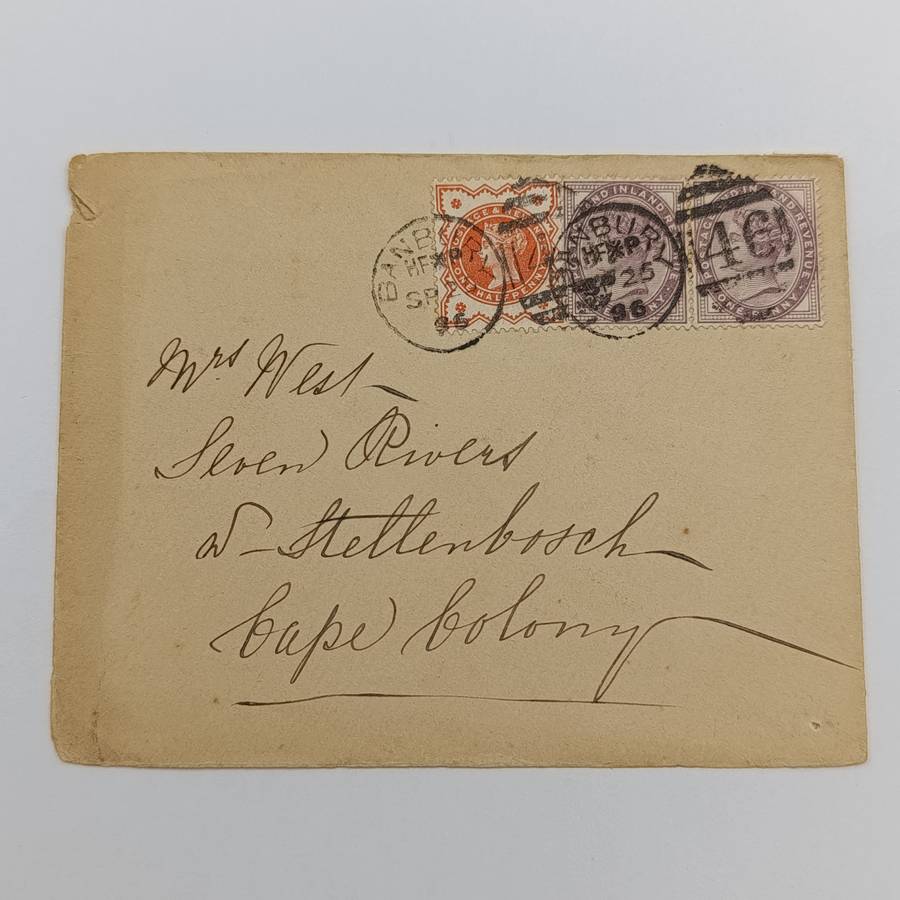 BANBURY
HF P
SP
96
POSTAGE & REVENUE
ONE HALFPENNY
BANBURY
HF P
SP 25
96
AND INLAND RE
POSTAGE AND INLAND REVENUE
ONE PENNY
46
Mrs West
Seven Rivers
Stellenbosch
Cape Colony